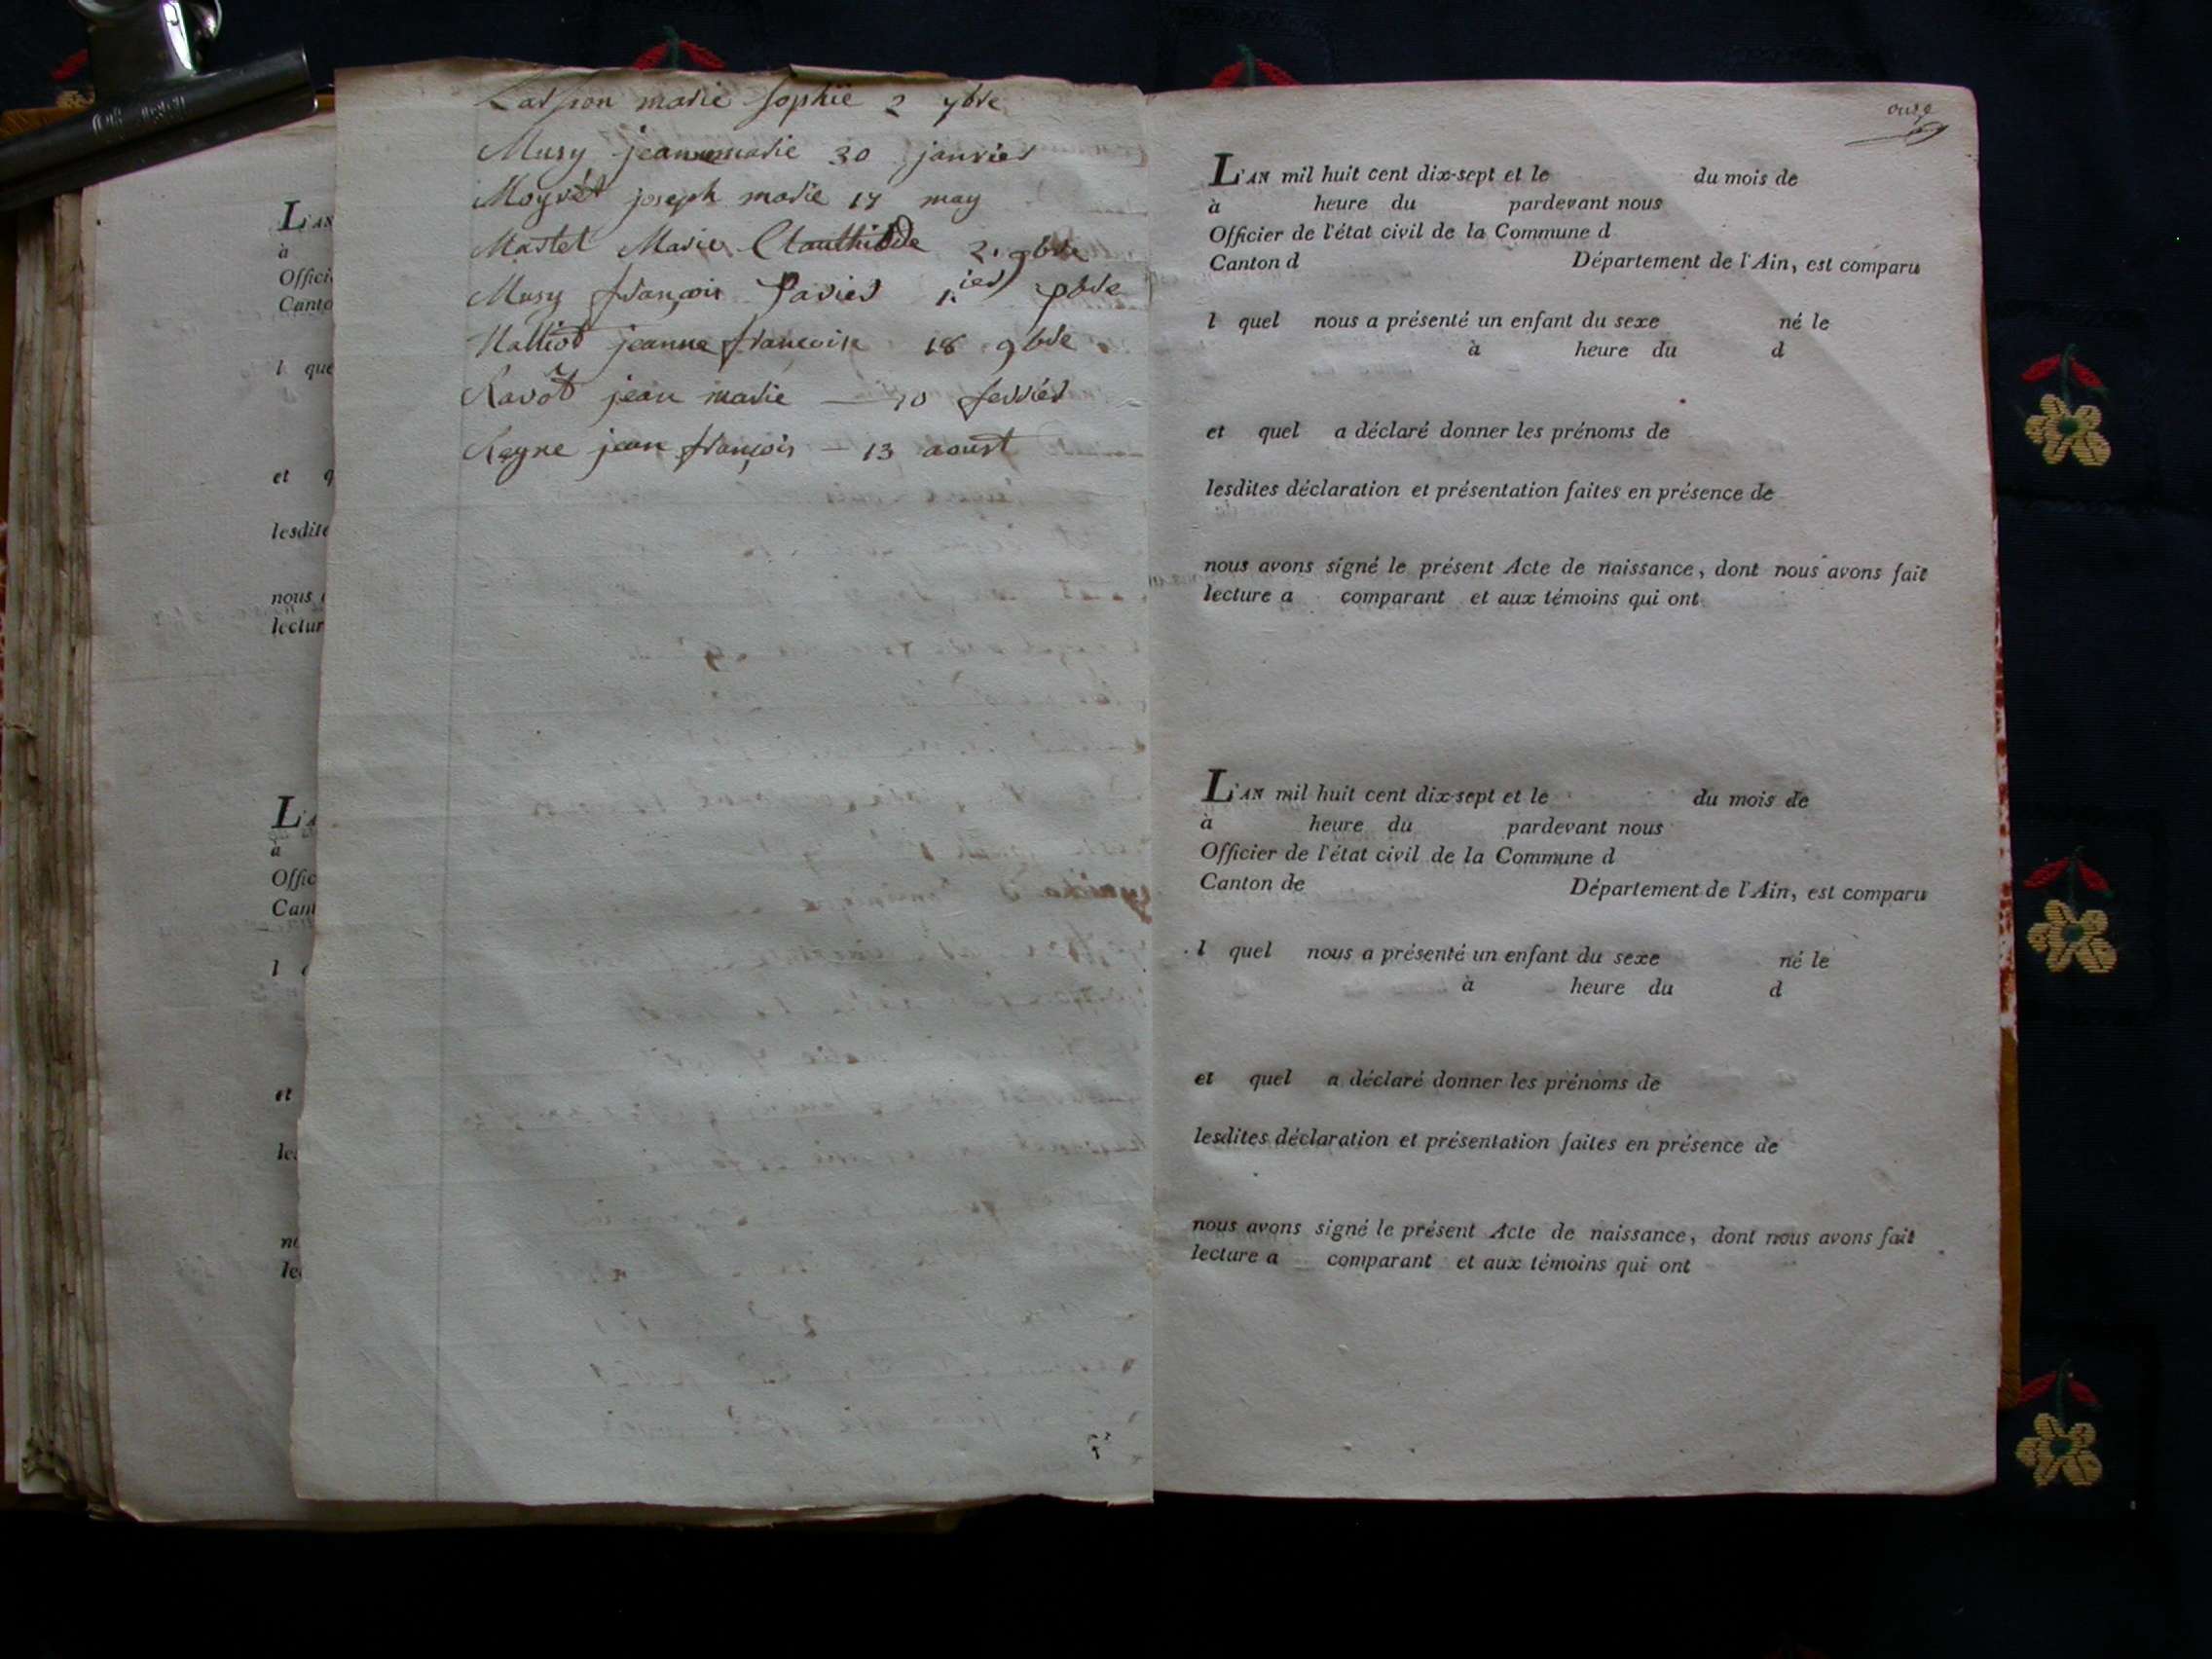 marie Sophie 2 7bre
Musy jeanne marie 30 janvier
Moyret joseph marie 17 may
Martel Marie 9bre
Musy françois Xavier 1.ier
jeanne françoise 18 9bre
Ravot jean marie — 10 fevrier
Rayne jean françois — 13 aoust
L'AN
à
Offici
Canto
l que
et q
lesdite
nous
lectur
L'A
à
Offic
Cant
l
et
les
no
lec
onze
L'AN mil huit cent dix-sept et le du mois de
à heure du pardevant nous
Officier de l'état civil de la Commune d
Canton d Département de l'Ain, est comparu
l quel nous a présenté un enfant du sexe né le
à heure du d
et quel a déclaré donner les prénoms de
lesdites déclaration et présentation faites en présence de
nous avons signé le présent Acte de naissance, dont nous avons fait
lecture a comparant et aux témoins qui ont
L'AN mil huit cent dix-sept et le du mois de
à heure du pardevant nous
Officier de l'état civil de la Commune d
Canton de Département de l'Ain, est comparu
l quel nous a présenté un enfant du sexe né le
à heure du d
et quel a déclaré donner les prénoms de
lesdites déclaration et présentation faites en présence de
nous avons signé le présent Acte de naissance, dont nous avons fait
lecture a comparant et aux témoins qui ont